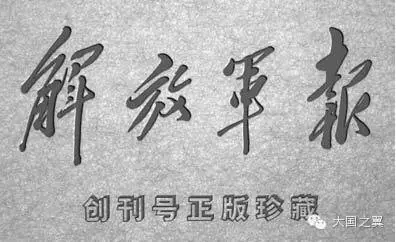 解放軍報
创刊号正版珍藏
大国之翼